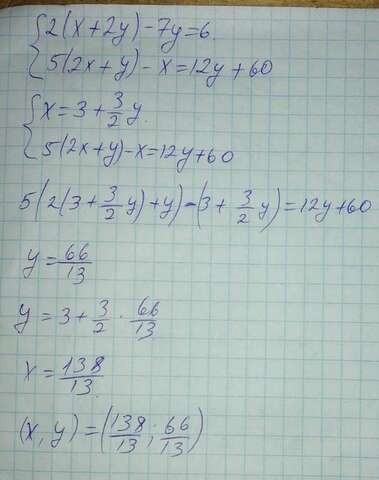 {2(x+2y)-7y=6.
{5(2x+y)-x=12y+60
{x=3+3/2y.
{5(2x+y)-x=12y+60
5(2(3+3/2y)+y)-(3+3/2y)=12y+60
y=66/13
y=3+3/2·66/13
x=138/13
(x,y)=(138/13;66/13)